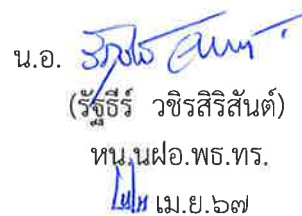 น.อ.
(รัฐธีร์ วชิรสิริสันต์)
หน.นฝอ.พธ.ทร.
เม.ย.๖๗